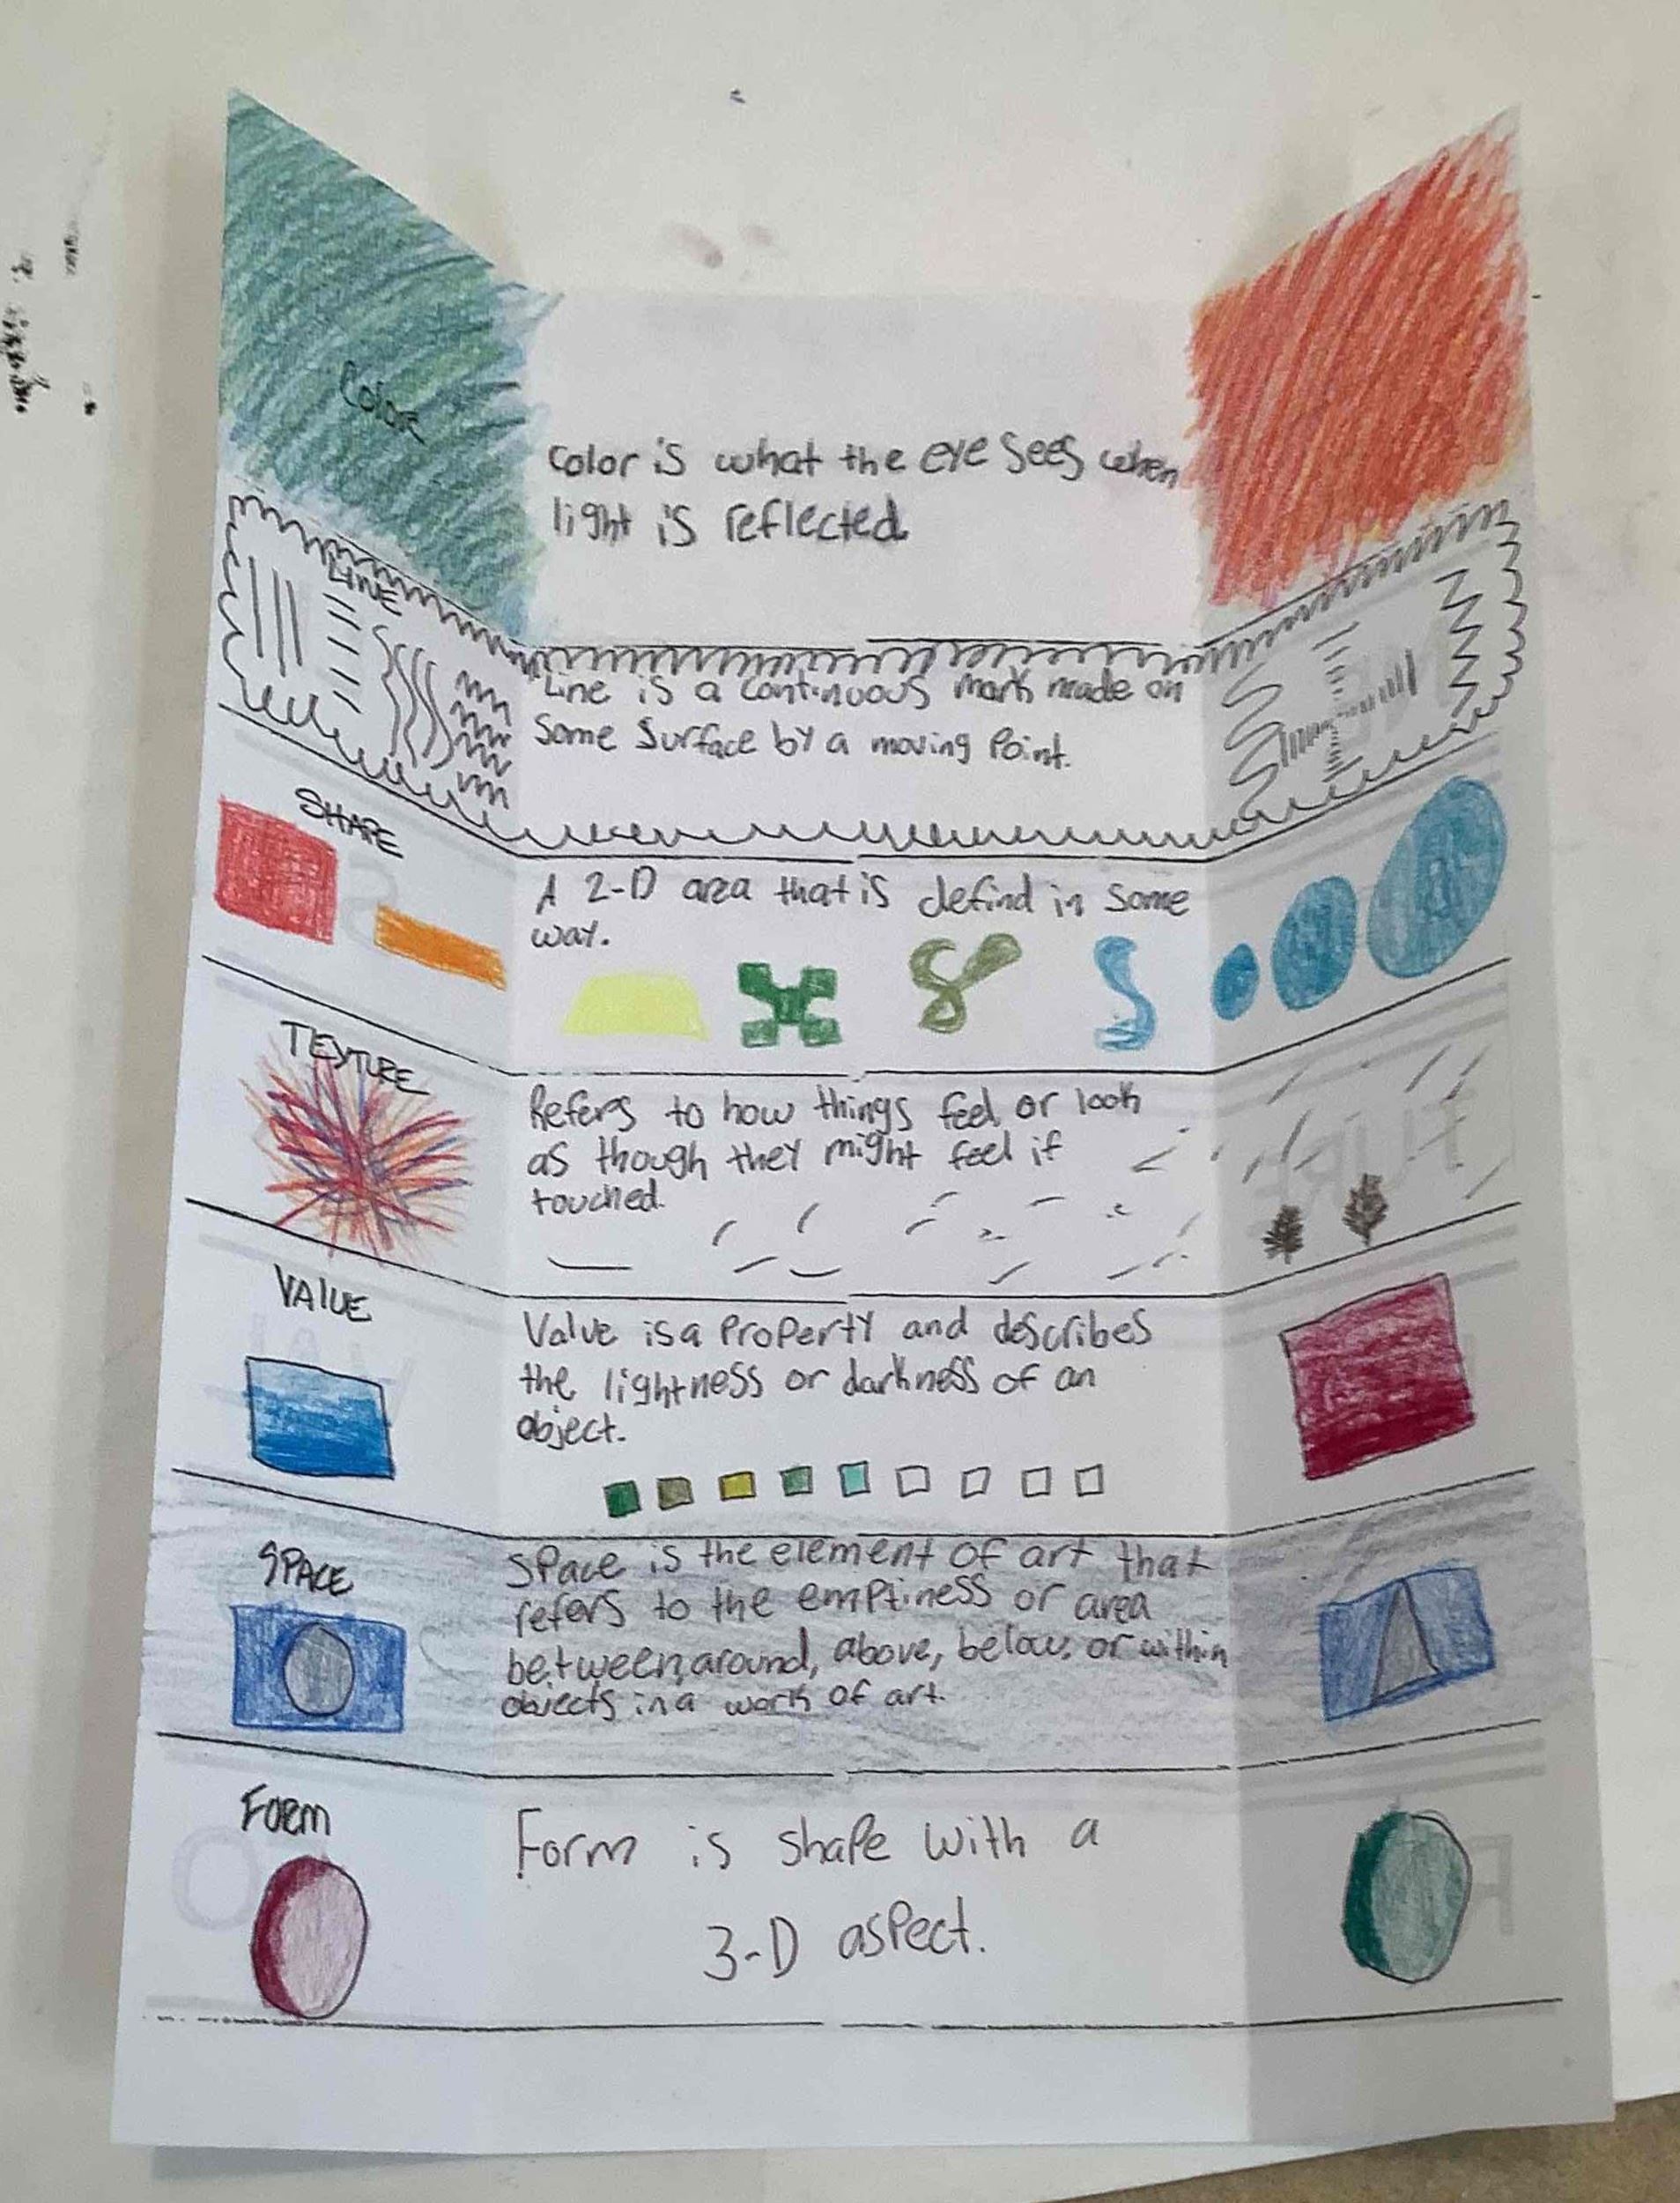 Color
Color is what the eye sees when
light is reflected.
LINE
Line is a continuous mark made on
some surface by a moving point.
SHAPE
A 2-D area that is defind in some
way.
TEXTURE
Refers to how things feel or look
as though they might feel if
touched.
VALUE
Value is a property and describes
the lightness or darkness of an
object.
SPACE
Space is the element of art that
refers to the emptiness or area
between, around, above, below, or within
objects in a work of art.
FORM
Form is shape with a
3-D aspect.